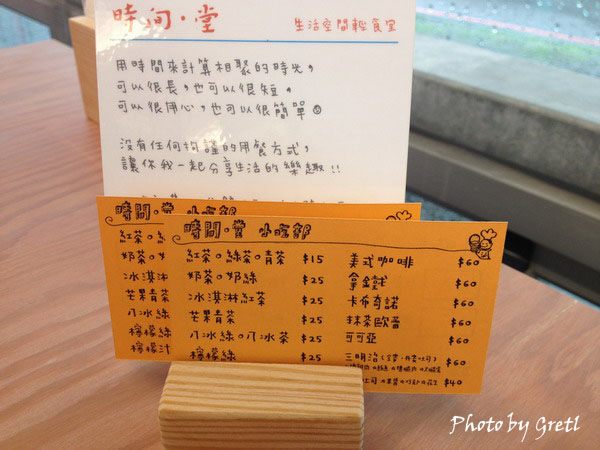 時間·堂 生活空間輕食室
用時間來計算相聚的時光，
可以很長，也可以很短，
可以很用心，也可以很簡單
沒有任何拘謹的用餐方式，
讓你我一起分享生活的樂趣!!
時間·堂 小吃部
紅茶
奶茶
冰淇淋
芒果青茶
八冰綠
檸檬綠
檸檬汁
時間·堂 小吃部
紅茶。綠茶。青茶 $15
奶茶。奶綠 $25
冰淇淋紅茶 $25
芒果青茶 $25
八冰綠。八冰茶 $25
檸檬綠 $25
美式咖啡 $60
拿鐵 $60
卡布奇諾 $60
抹茶歐蕾 $60
可可亞 $60
三明治 $60
$40
Photo by Gretl